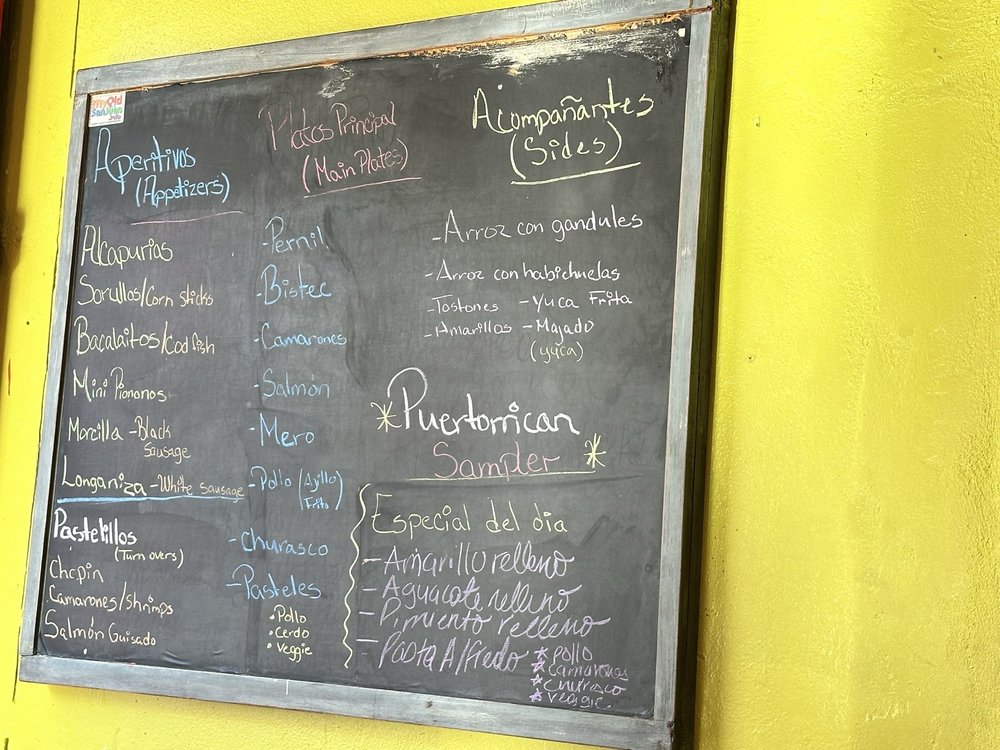 my Old
San Juan
Aperitivos
(Appetizers)
Alcapurias
Sorullos/Corn sticks
Bacalaitos/Codfish
Mini Piononos
Morcilla -Black
Sausage
Longaniza -White sausage
Pastelillos
(Turn overs)
Chapin
Camarones/Shrimps
Salmón Guisado
Platos Principal
(Main Plates)
-Pernil
-Bistec
-Camarones
-Salmón
-Mero
-Pollo (Ajillo)
Frito
-Churasco
-Pasteles
• Pollo
• Cerdo
• Veggie
Acompañantes
(Sides)
-Arroz con gandules
-Arroz con habichuelas
-Tostones -Yuca Frita
-Amarillos -Majado
(yuca)
*Puertorrican
Sampler *
Especial del dia
-Amarillo relleno
-Aguacate relleno
-Pimiento relleno
-Pasta Alfredo * pollo
* camarones
* churasco
* veggie